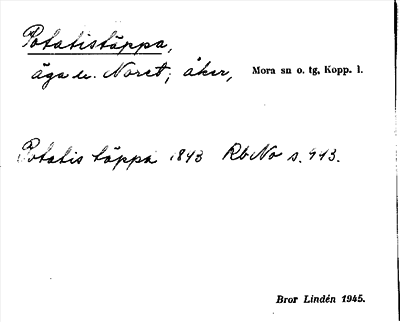 Potatistäppa,
äga u. Noret; åker, Mora sn o. tg, Kopp. l.
Potatis täppa 1843 RbNo s. 443.
Bror Lindén 1945.